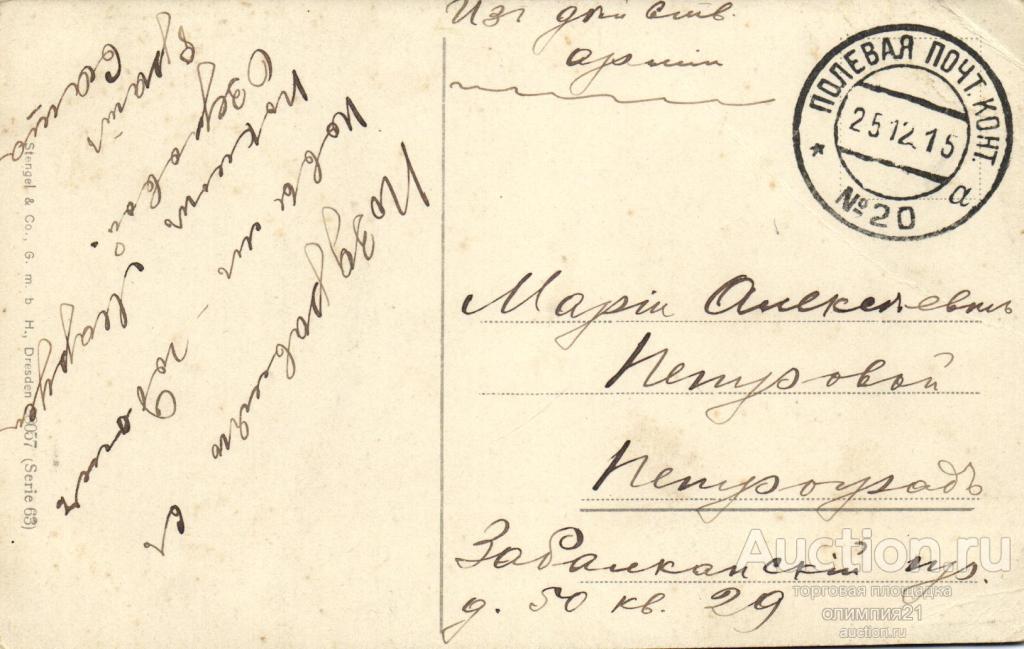 Изъ действ.
арміи
ПОЛЕВАЯ ПОЧТ. КОНТ.
25.12.15
* №20 а
Маріи Алексеевнѣ
Петровой
Петроградъ
Забалканскій пр.
д. 50 кв. 29
Поздравляю
съ
новымъ
годомъ
Stengel & Co., G. m. b. H., Dresden 057 (Serie 63)
Auction.ru
торговая площадка
олимпия21
auction.ru